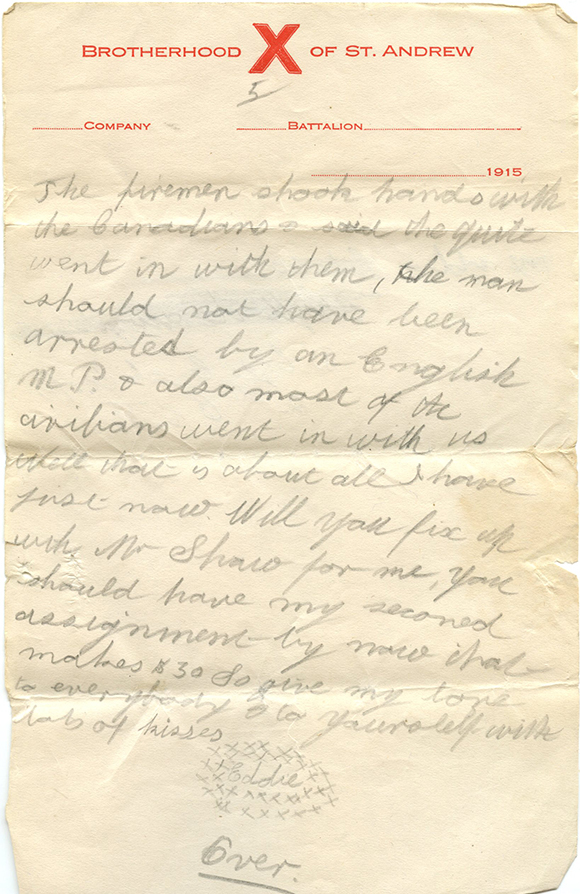 BROTHERHOOD X OF ST. ANDREW
5
COMPANY BATTALION
1915
The firemen shook hands with
the Canadians & said the quite
went in with them, the man
should not have been
arrested by an English
M P. & also most of the
civilians went in with us
Well that is about all I have
just now. Will you fix up
with Mr Shaw for me, you
should have my second
assignment by now that
makes $30 So give my love
to everybody & to yourself with
lots of kisses
Eddie
Over.